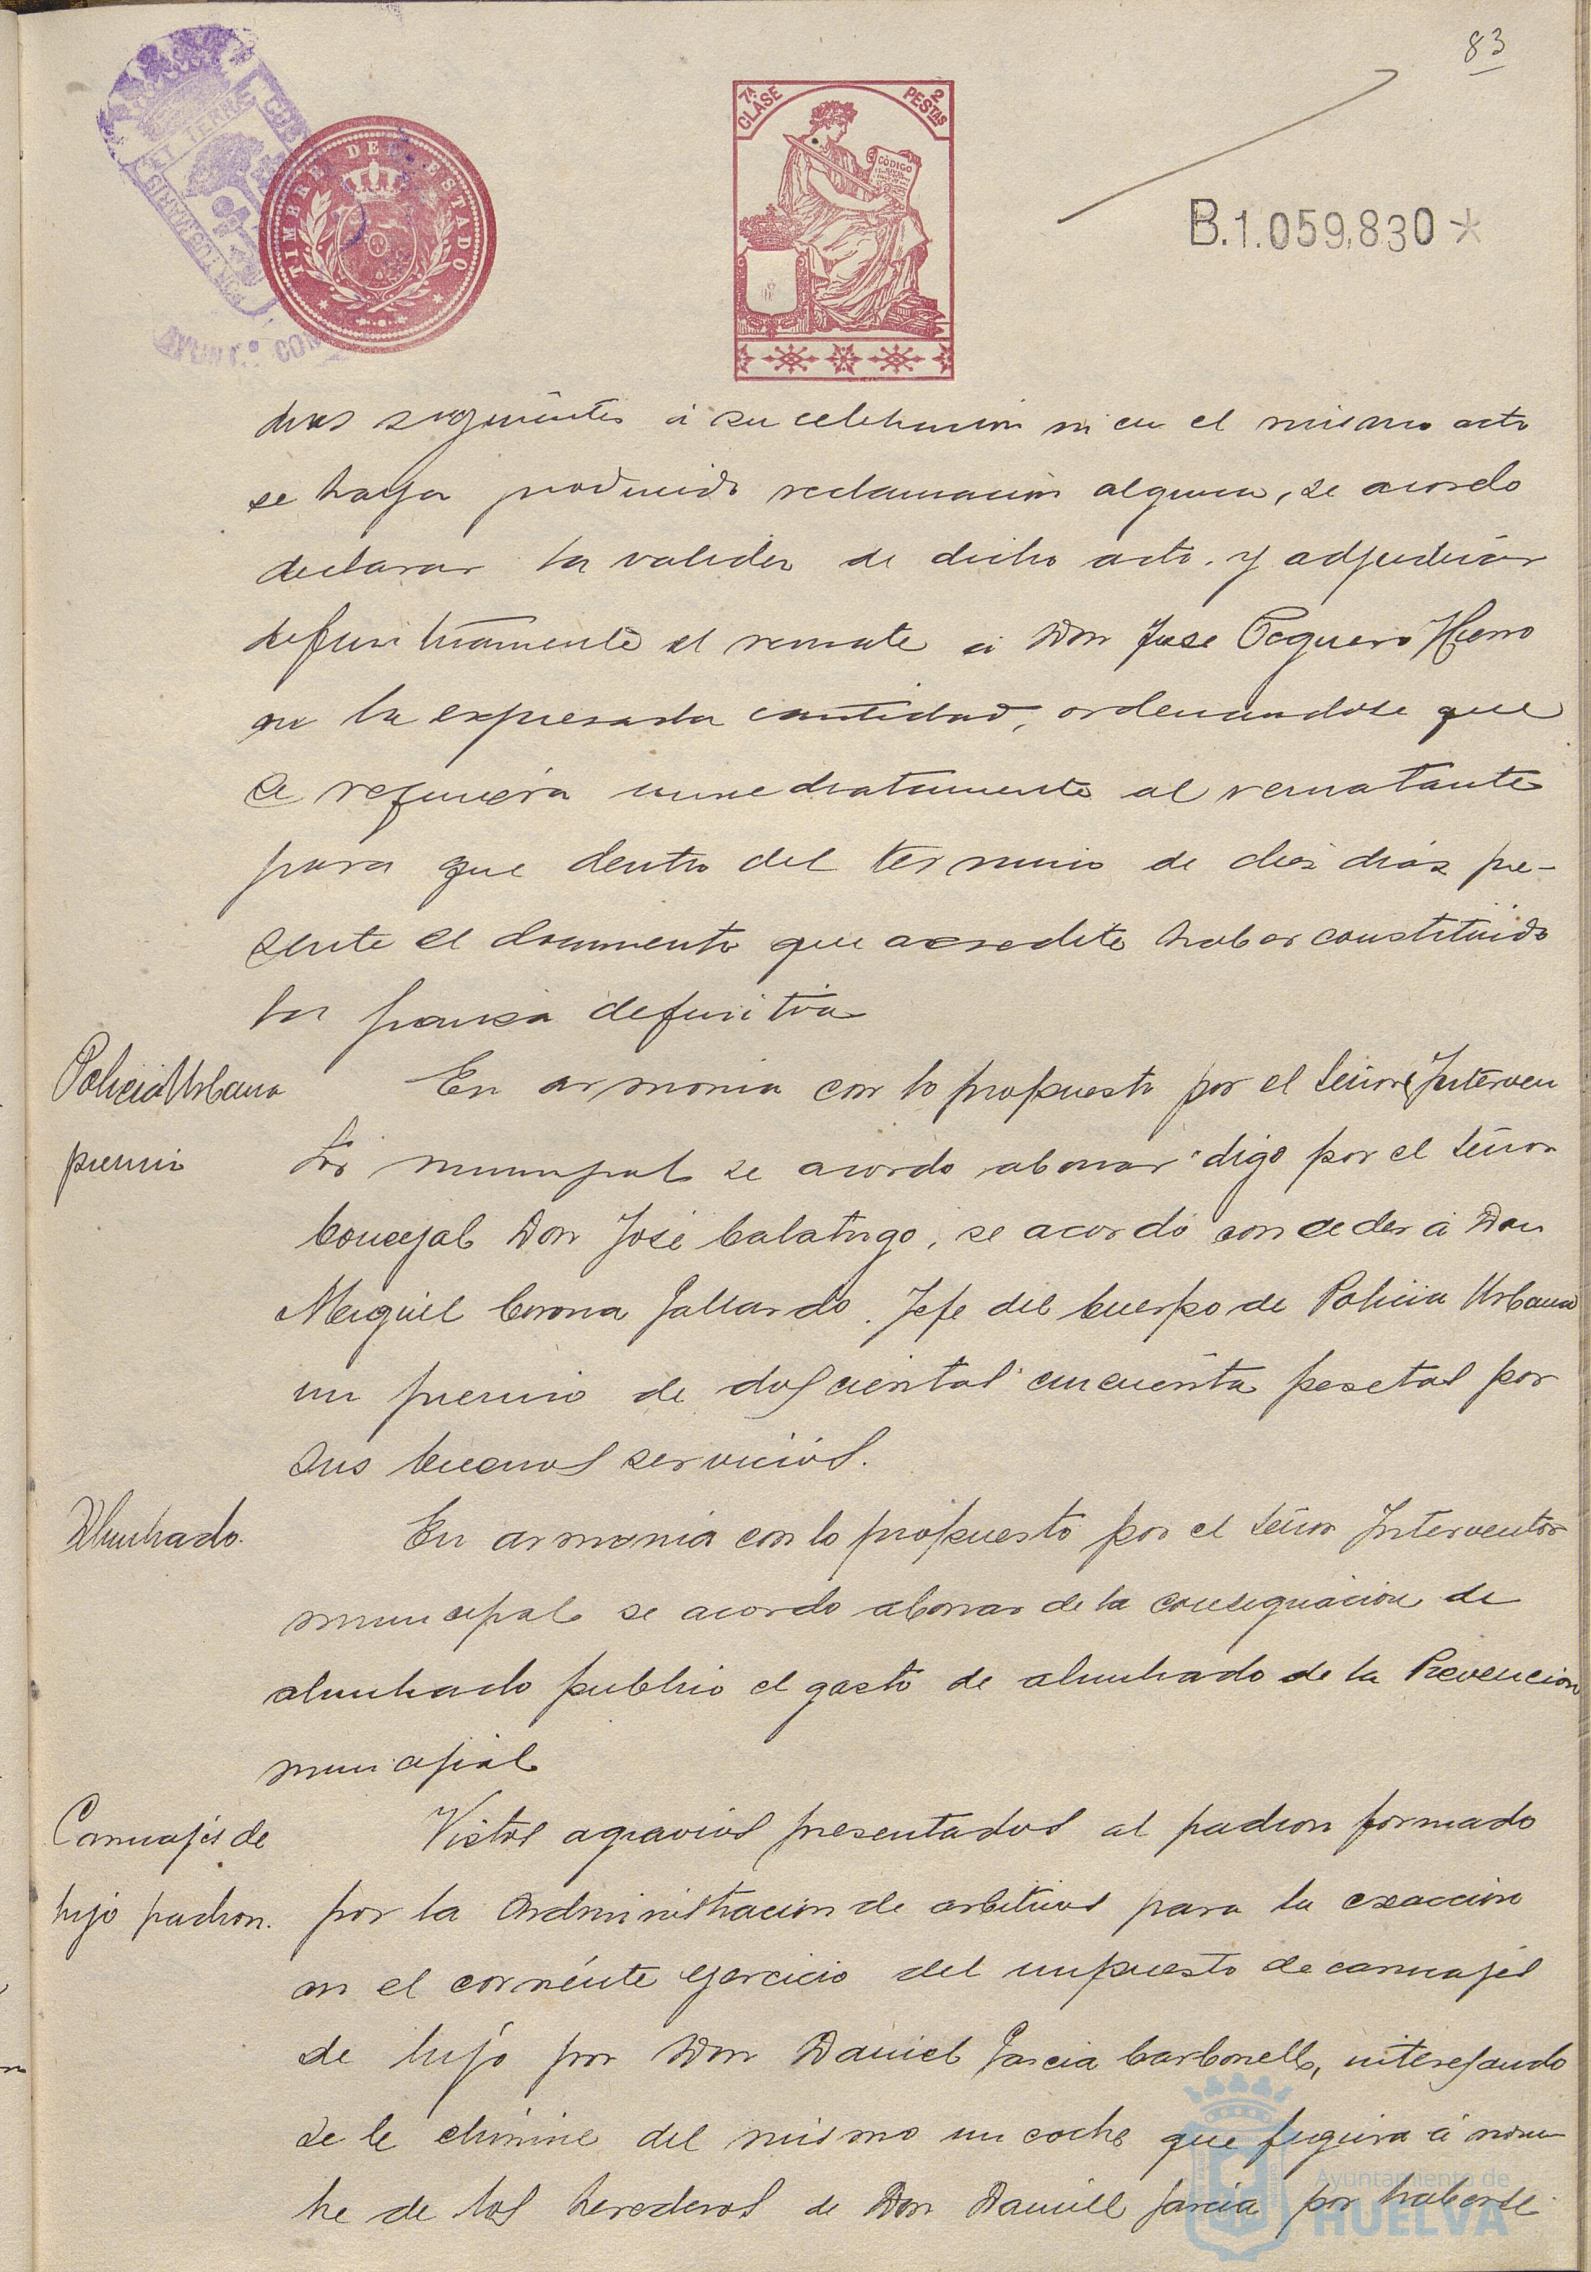 83
7ª CLASE
2 PESTAS
CÓDIGO
TIMBRE DEL ESTADO
B.1.059.830*
dias siguientes á su celebracion ni en el mismo acto
se haya producido reclamacion alguna, se acordo
declarar la validez de dicho acto. y adjudicar
definitivamente el remate a Don Jose Peguero Hierro
en la expresada cantidad, ordenandose que
se requiera inmediatamente al rematante
para que dentro del termino de diez dias pre-
sente el documento que acredite haber constituido
la fianza definitiva
Policia Urbana
premio
En armonia con lo propuesto por el Señor Interven
tor municipal se acordo abonar digo por el Señor
Concejal Don José Calatrigo, se acordó conceder á Don
Miguel Corona Gallardo. Jefe del Cuerpo de Policia Urbana
un premio de doscientas cincuenta pesetas por
sus buenos servicios.
Alumbrado.
En armonia con lo propuesto por el Señor Interventor
municipal se acordo abonar de la consignacion de
alumbrado publico el gasto de alumbrado de la Prevencion
municipal
Carruajes de
lujo padron.
Vistos agravios presentados al padron formado
por la Administracion de arbitrios para la exaccion
en el corriente ejercicio del impuesto de carruajes
de lujo por Don Daniel Garcia Carbonell, interesando
se le elimine del mismo un coche que figura á nom
bre de los herederos de Don Daniel Garcia por haberse
Ayuntamiento de
HUELVA